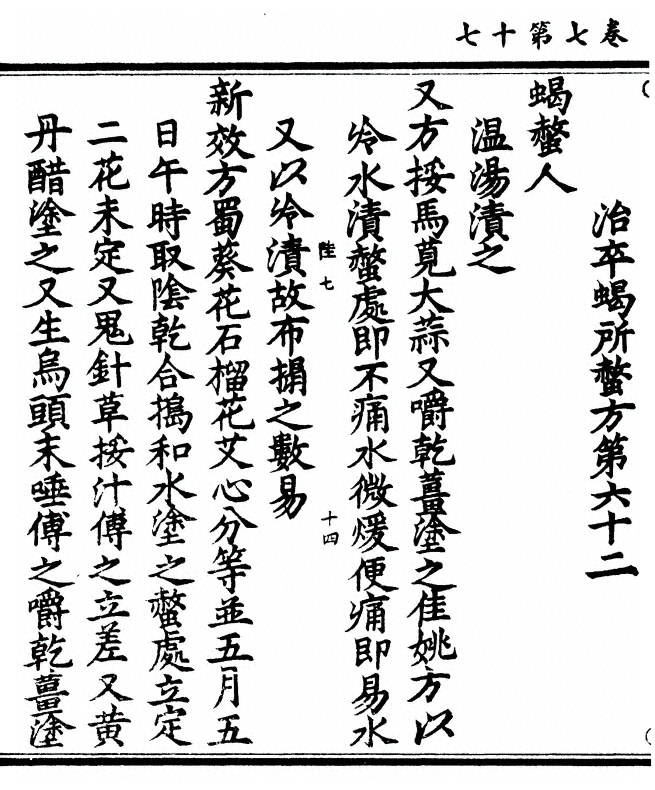 卷七第十七
治卒蝎所螫方第六十二
蝎螫人
温湯漬之
又方挼馬莧大蒜又嚼乾薑塗之佳姚方以
冷水漬螫處即不痛水微煖便痛即易水
陸七
十四
又以冷漬故布搨之數易
新效方蜀葵花石榴花艾心分等並五月五
日午時取陰乾合搗和水塗之螫處立定
二花末定又鬼針草挼汁傅之立差又黃
丹醋塗之又生烏頭末唾傅之嚼乾薑塗